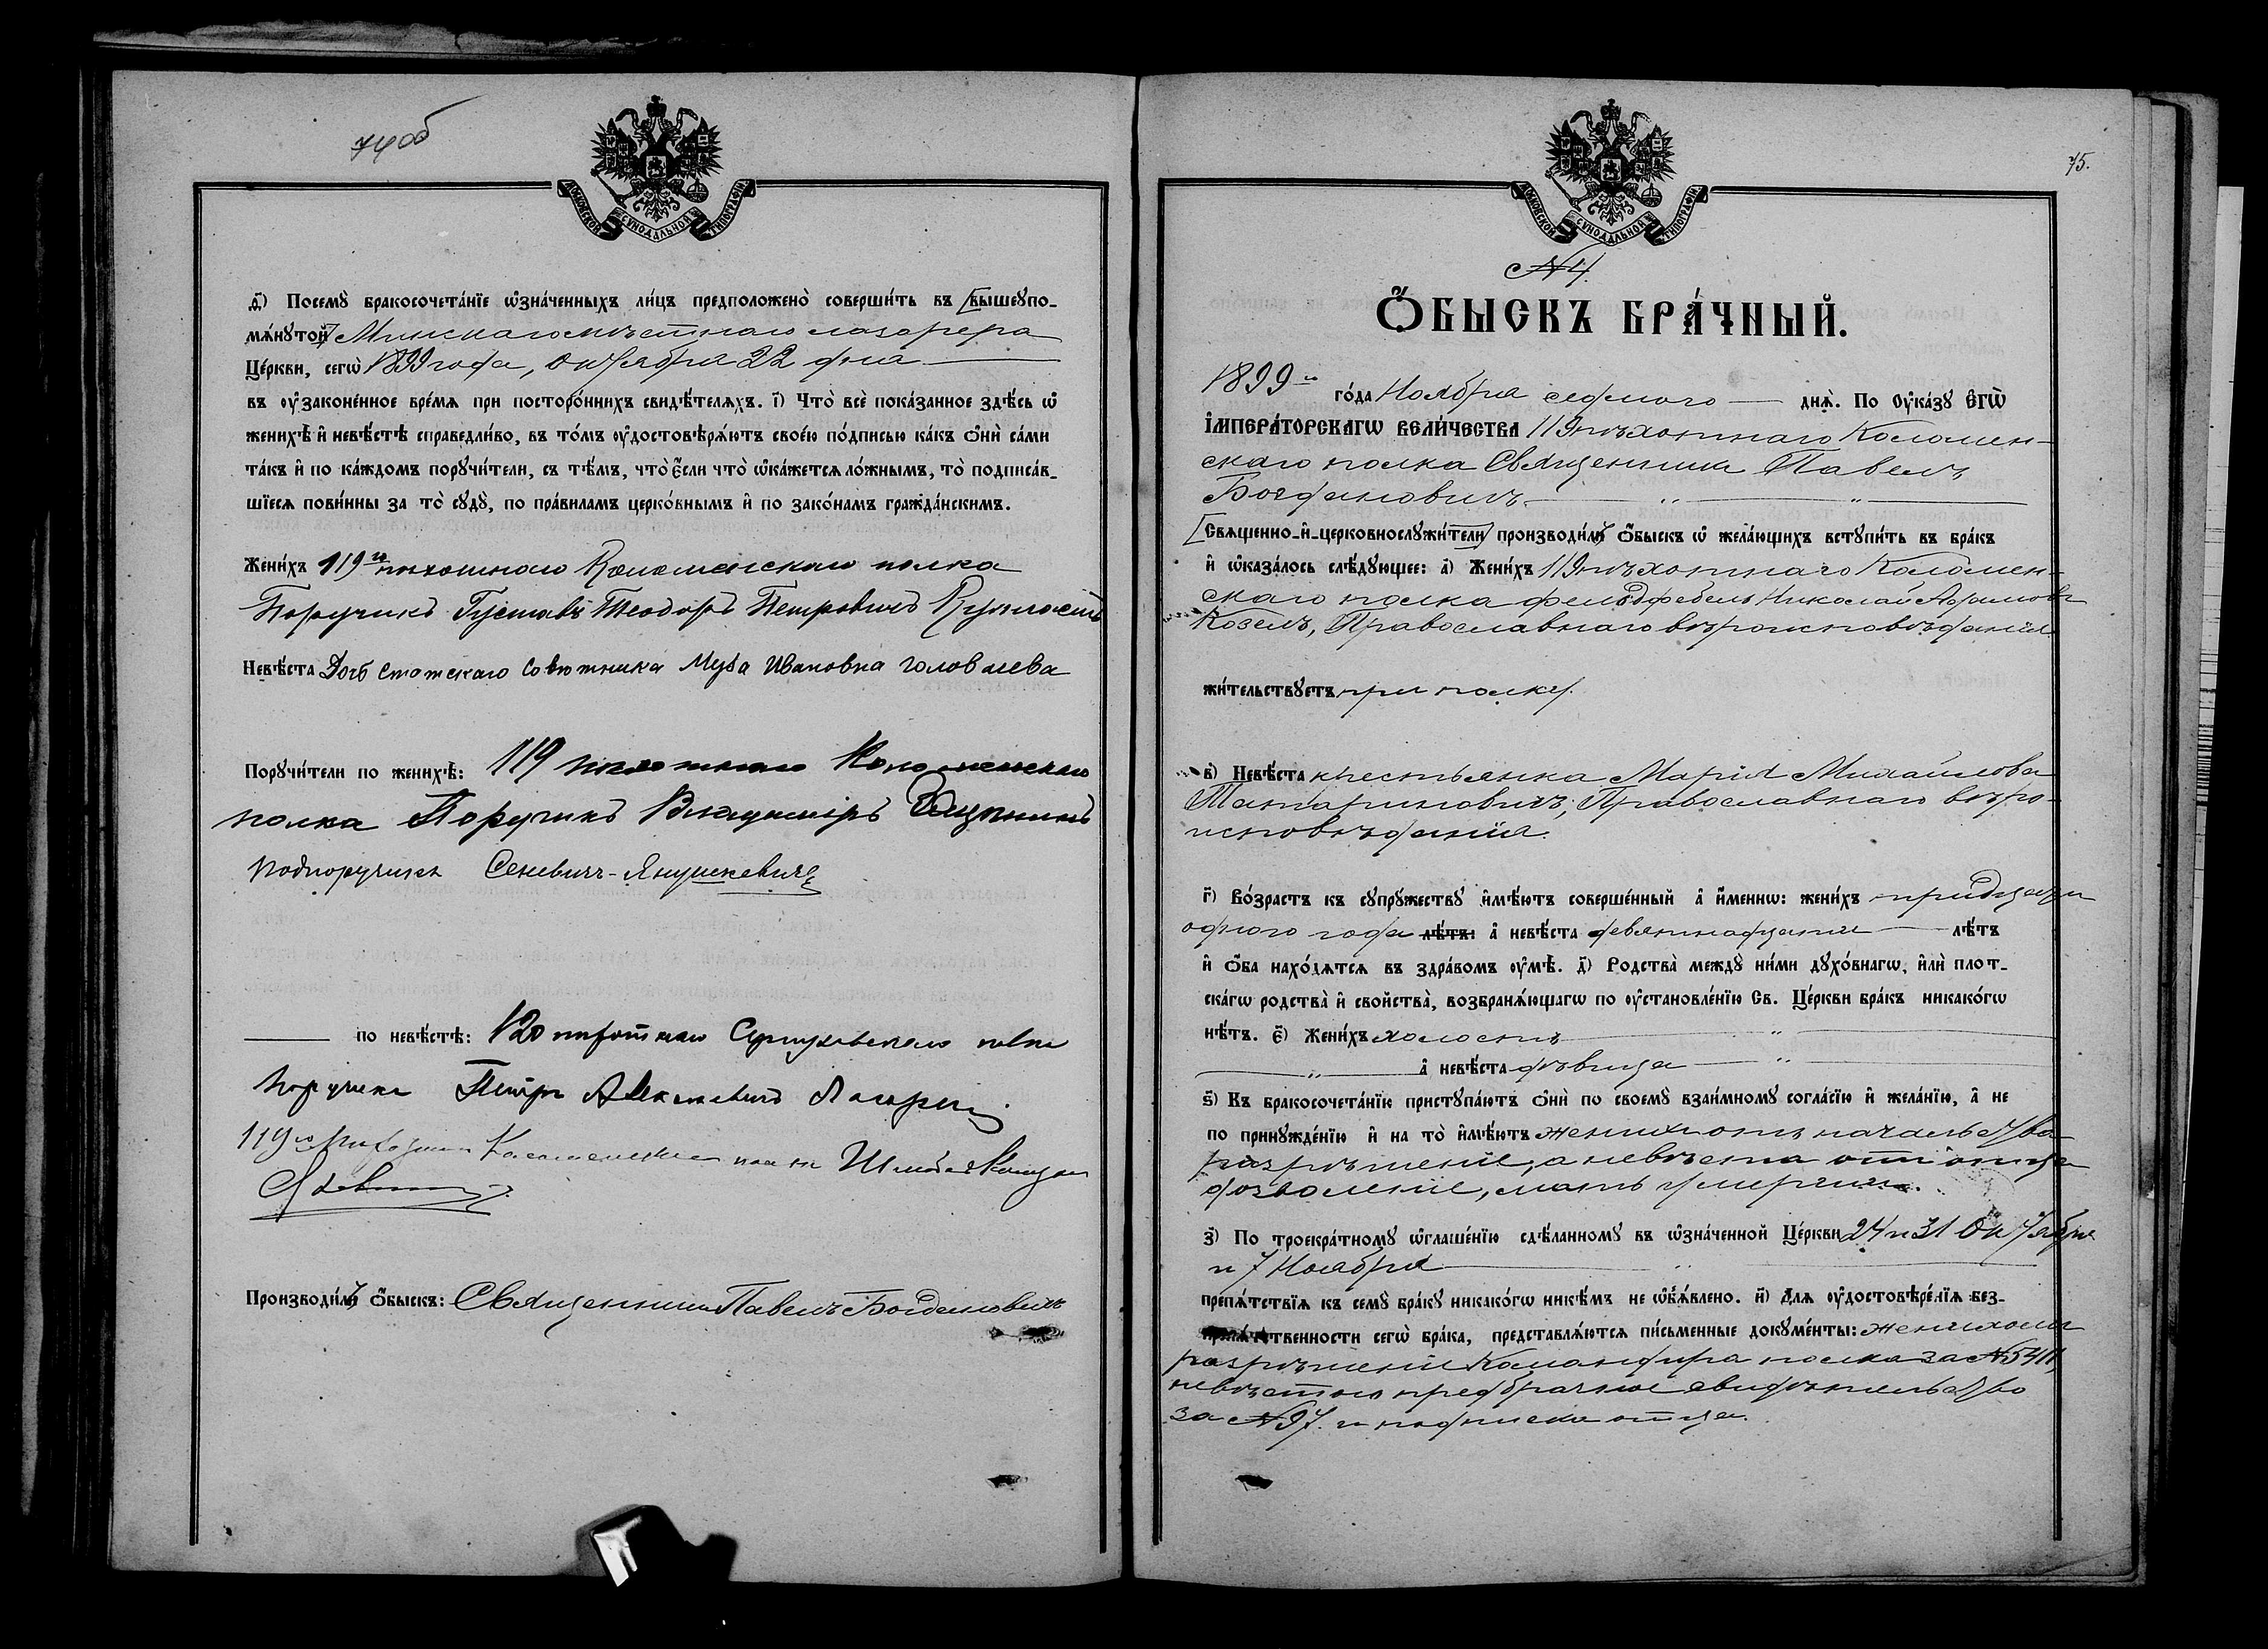 74об
МОСКОВСКОЙ СѴНОДАЛЬНОЙ ТИПОГРАФІИ
д҃) Посемꙋ̀ бракосочета́нїе ѡ҆зна́ченныхъ ли́цъ предположено̀ соверши́ть въ [вышеꙋпо-
мѧ́нꙋтой] Минскаго мѣстнаго лазарета
Це́ркви, сегѡ̀ 1899 года, Октября 22 дня
въ ᲂу҆зако́ненное вре́мѧ при посторо́ннихъ свидѣ́телѧхъ. і҃) Что̀ всѐ пока́занное здѣ́сь ѡ҆
женихѣ̀ и҆ невѣ́стѣ справедли́во, въ то́мъ ᲂу҆достовѣрѧ́ютъ свое́ю по́дписью ка́къ ѻ҆нѝ са́ми
та́къ и҆ по ка́ждомъ порꙋчи́тели, съ тѣ́мъ, что̀ є҆́сли что̀ ѡ҆ка́жетсѧ ло́жнымъ, то̀ подписа́в-
шїесѧ пови́нны за то̀ сꙋдꙋ̀, по пра́виламъ церко́внымъ и҆ по зако́намъ гражда́нскимъ.
Жени́хъ 119го пѣхотнаго Коломенскаго полка
Поручикъ Густавъ Теодоръ Петровичъ
Невѣ́ста Дочь Статскаго Совѣтника Муза Ивановна Головачева
Порꙋчи́тели по женихѣ̀: 119 пѣхотнаго Коломенскаго
полка Поручикъ Владимиръ
Подпоручикъ Сеневичъ-Янушкевичъ
по невѣ́стѣ: 120 пѣхотнаго Серпуховскаго полка
поручикъ Петръ
119го пѣхотнаго Коломенскаго полка Штабсъ-Капитанъ
Производи́лъ ѻ҆́быскъ: Священникъ Павелъ Богдановичъ
75.
МОСКОВСКОЙ СѴНОДАЛЬНОЙ ТИПОГРАФІИ
№ 4.
Ѻ҆́БЫСКЪ БРА́ЧНЫЙ.
1899го го́да Ноября седьмого днѧ̀. По ᲂу҆ка́зꙋ Є҆гѡ̀
І҆мпера́торскагѡ Вели́чества 119 пѣхотнаго Коломен-
скаго полка Священникъ Павелъ
Богдановичъ
[Свѧщенно-и҆-церковнослꙋжи́тели] производи́лъ ѻ҆́быскъ ѡ҆ жела́ющихъ встꙋпи́ть въ бра́къ
и҆ ѡ҆каза́лось слѣ́дꙋющее: а҃) Жени́хъ 119 пѣхотнаго Коломен-
скаго полка фельдфебель Николай Адамовъ
Козелъ, Православнаго вѣроисповѣданія
жи́тельствꙋетъ при полку.
в҃) Невѣ́ста крестьянка Марія Михайлова
Татариновичъ, Православнаго вѣро-
исповѣданія.
г҃) Во́зрастъ къ сꙋпрꙋ́жествꙋ и҆мѣ́ютъ соверше́нный а҆ и҆́менно: жени́хъ тридцати
одного года лѣ́тъ: а҆ невѣ́ста девятнадцати лѣ́тъ
и҆ ѻ҆́ба нахо́дѧтсѧ въ здра́вомъ ᲂу҆мѣ̀. д҃) Родства̀ междꙋ̀ ни́ми дꙋхо́внагѡ, и҆лѝ плот-
ска́гѡ родства̀ и҆ свойства̀, возбранѧ́ющагѡ по ᲂу҆становле́нїю Св. Це́ркви бра́къ никако́гѡ
нѣ́тъ. є҃) Жени́хъ холостъ
а҆ невѣ́ста дѣвица
ѕ҃) Къ бракосочета́нїю пристꙋпа́ютъ ѻ҆нѝ по своемꙋ̀ взаи́мномꙋ согла́сїю и҆ жела́нїю, а҆ не
по принꙋжде́нїю и҆ на то̀ и҆мѣ́ютъ женихъ отъ начальства
разрѣшеніе, а невѣста отъ отца
дозволеніе, мать умерши.
з҃) По троекра́тномꙋ ѡ҆глаше́нїю сдѣ́ланномꙋ въ ѡ҆зна́ченной Це́ркви 24 и 31 Октября
и 7 Ноября
препѧ́тствїѧ къ семꙋ̀ бра́кꙋ никако́гѡ никѣ́мъ не ѡ҆б̾ѧ́влено. и҃) Длѧ ᲂу҆достовѣре́нїѧ без-
препѧ́тственности сегѡ̀ бра́ка, представлѧ́ютсѧ пи́сьменные докꙋме́нты: женихомъ
разрѣшеніе Командира полка за № 5411,
невѣстою предбрачное свидѣтельство
за № 97. и подписка отца.